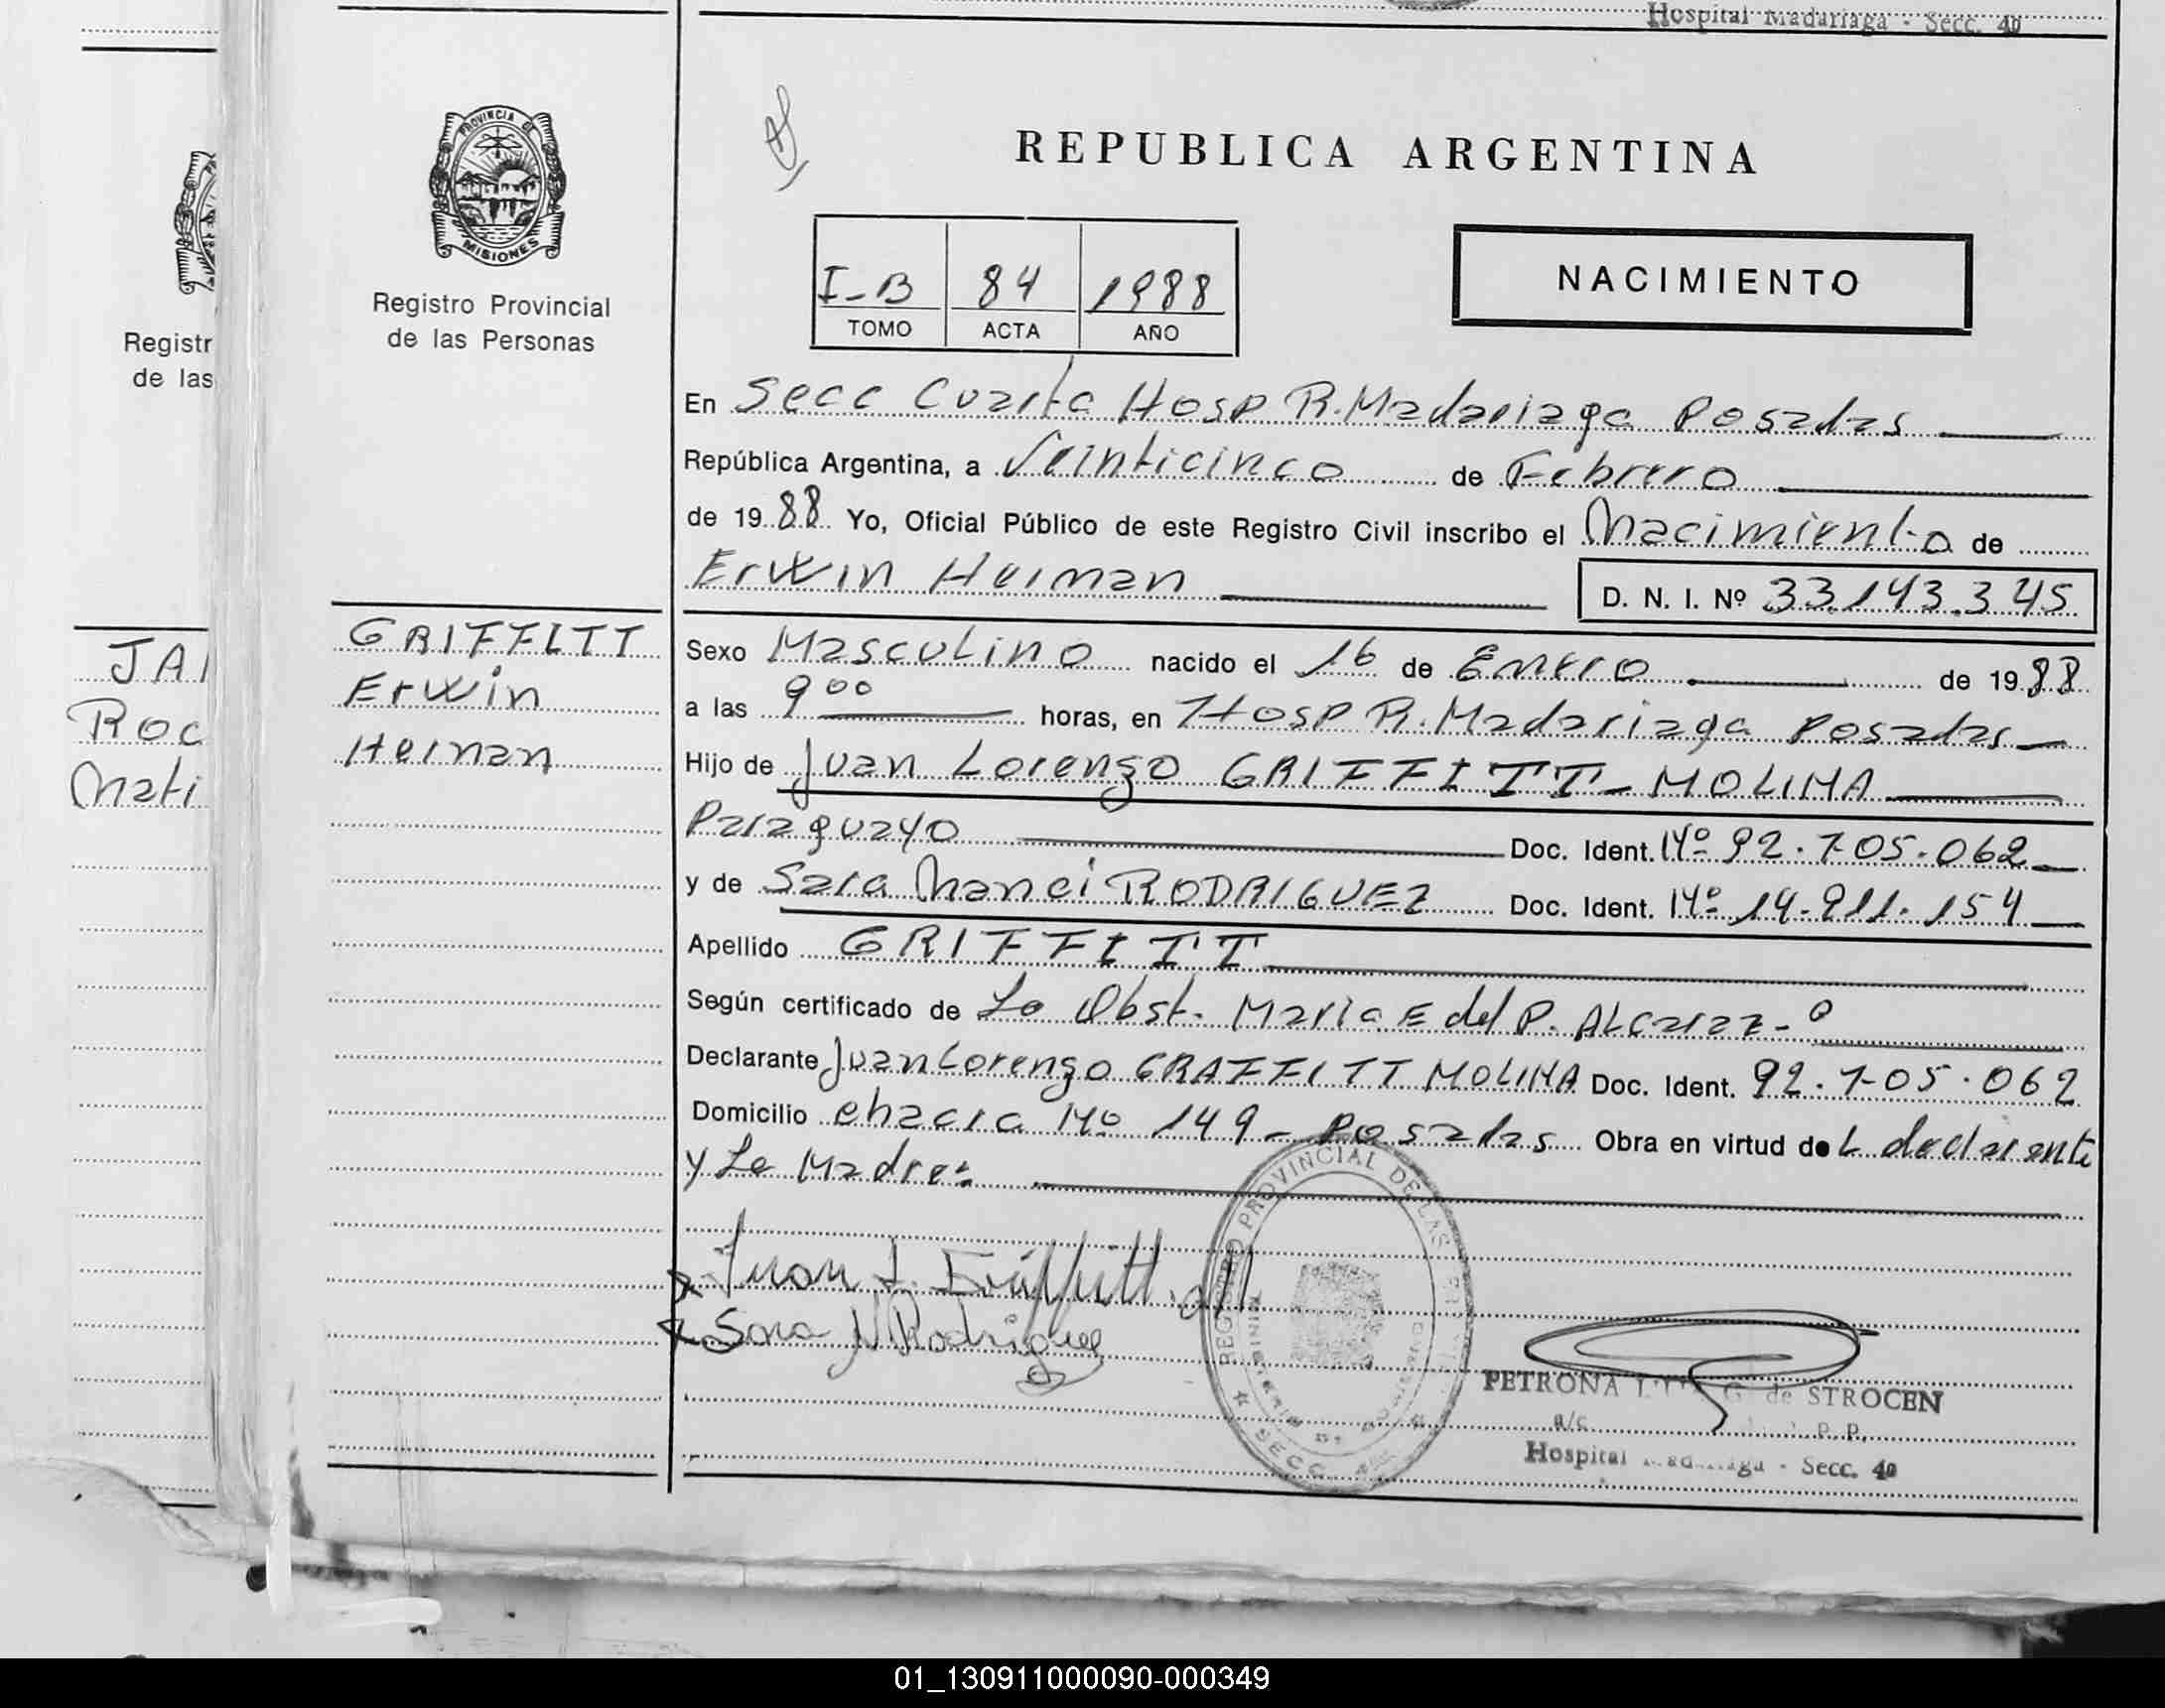 Hospital Madariaga - Secc. 4a
PROVINCIA DE
MISIONES
Registro Provincial
de las Personas
Registr
de las
REPUBLICA ARGENTINA
I-B 84 1988
TOMO ACTA AÑO
NACIMIENTO
En Secc Cuarta Hosp R. Madariaga Posadas
República Argentina, a Veinticinco de Febrero
de 1988 Yo, Oficial Público de este Registro Civil inscribo el Nacimiento de
Erwin Hernan D. N. I. Nº 33.143.345
GRIFFITT
Erwin
Hernan
JA
Roc
Mati
Sexo Masculino nacido el 16 de Enero de 1988
a las 9 00 horas, en Hosp R. Madariaga Posadas
Hijo de Juan Lorenzo GRIFFITT - MOLINA
Paraguayo Doc. Ident. Nº 92.705.062
y de Sara Nanci RODRIGUEZ Doc. Ident. Nº 14.911.154
Apellido GRIFFITT
Según certificado de La Obst. Maria E del P. ALCaraz-
Declarante Juan Lorenzo GRAFFITT MOLINA Doc. Ident. 92.705.062
Domicilio chacra Nº 149 - Posadas Obra en virtud de L declarante
y La Madre:
Juan L. Griffitt.
Sara N. Rodriguez
REGISTRO PROVINCIAL DE LAS
SECC
PETRONA G. de STROCEN
a/c P. P.
Hospital Madariaga - Secc. 4a
01_130911000090-000349